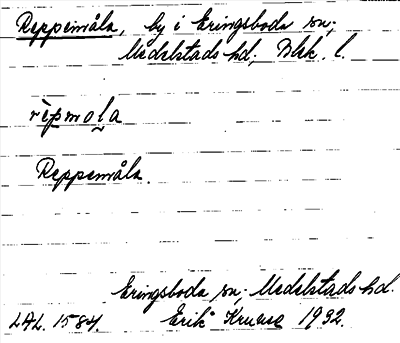 Reppemåla, by i Eringsboda sn;
Medelstads hd; Blek. l.
rèpmola
Reppemåla.
Eringsboda sn; Medelstads hd.
LAL. 1584. Erik Kruuse 1932.